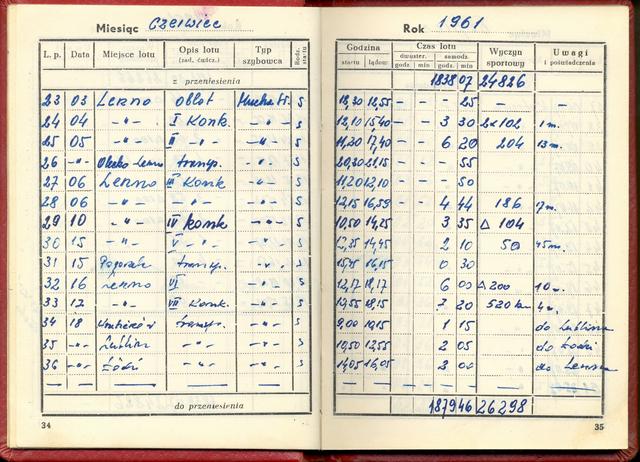 Miesiąc Czerwiec
Rok 1961
L. p. Data Miejsce lotu Opis lotu (zad. ćwicz.) Typ szybowca Rodz. startu
Godzina startu lądow. Czas lotu dwuster. godz. min samodz. godz. min Wyczyn sportowy Uwagi i poświadczenia
z przeniesienia 1838 07 24826
23 03 Leszno Oblot Mucha S 12,55 – – – 25 – –
24 04 -"- I Konk. -"- S 12,10 15,40 – – 3 30 2x102 1m.
25 05 -"- II -"- -"- S 11,20 17,40 – – 6 20 204 13m.
26 -"- Leszno transp. -"- S 20,20 21,15 – – – 55
27 06 Leszno III Konk -"- S 11,20 12,10 – – – 50
28 06 -"- -"- -"- S 12,15 16,59 – – 4 44 186 7m.
29 10 -"- IV Konk -"- S 10,50 14,25 3 35 Δ 104
30 15 -"- V -"- -"- S 12,35 14,45 2 10 50 45m.
31 15 transp. -"- S 15,45 16,15 0 30
32 16 Leszno VI -"- S 12,17 18,17 6 00 Δ 200 10m.
33 17 -"- VII Konk. -"- S 18,15 7 20 520 km 4m.
34 18 transp. -"- S 9,00 10,15 1 15 do Lublina
35 -"- Lublin -"- -"- S 10,50 12,55 2 05 do Łodzi
36 -"- Łódź -"- -"- S 14,05 16,05 2 00 do Leszna
do przeniesienia 1879 46 26298
34
35